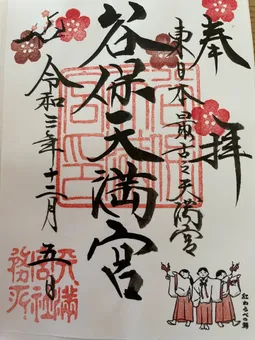 奉拝
東日本最古之天満宮
谷保天満宮
令和三年十二月五日
紅わらべの舞
天満宮社務所